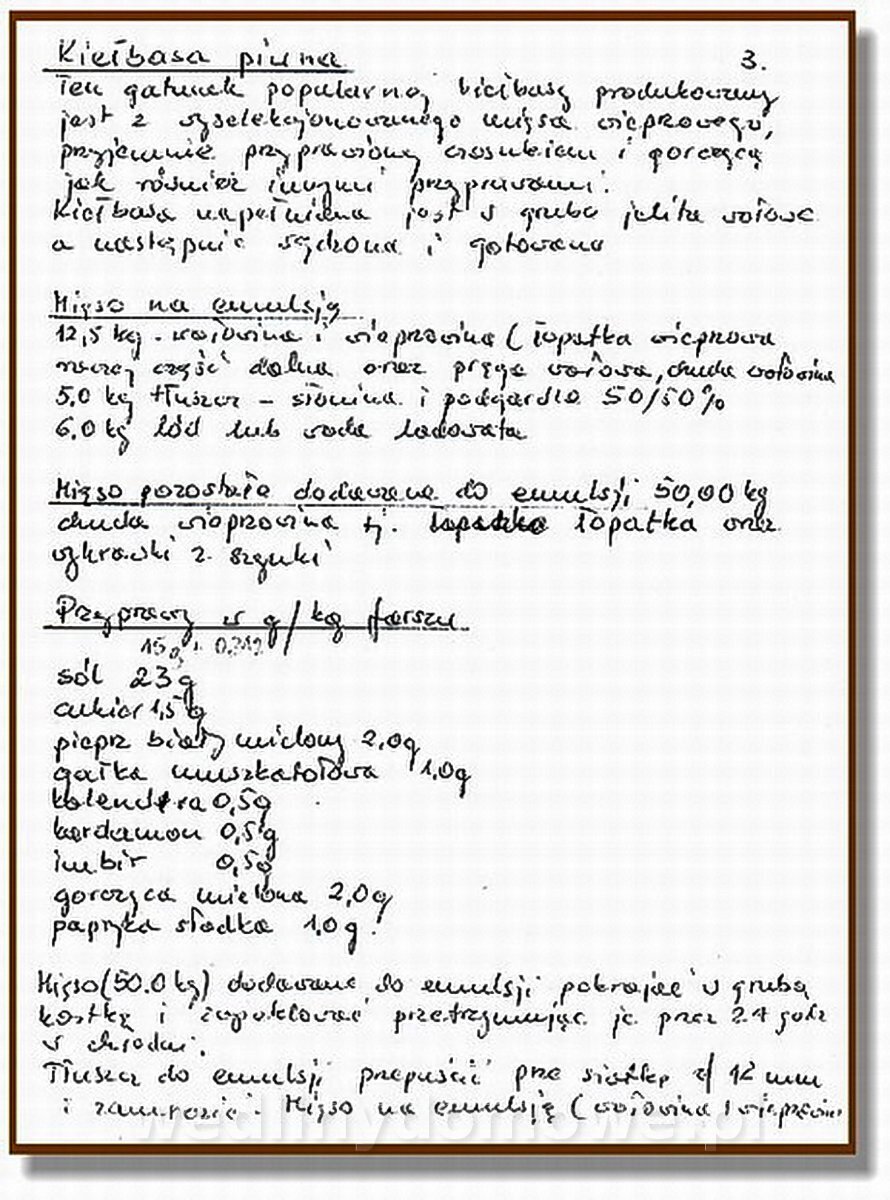 Kiełbasa piwna 3.
Ten gatunek popularnej kiełbasy produkowany
jest z wyselekcjonowanego mięsa wieprzowego,
przyjemnie przyprawionej czosnkiem i gorczycą
jak również innymi przyprawami.
Kiełbasa napełniana jest w grube jelita wołowe
a następnie wędzona i gotowana
Mięso na emulsję
12,5 kg wołowina i wieprzowina (łopatka wieprzowa
część dolna oraz pręga wołowa, chuda wołowina
5,0 kg tłuszcz - słonina i podgardle 50/50%
6.0 kg lód lub woda lodowata
Mięso pozostałe dodawane do emulsji 50,00 kg
chuda wieprzowina tj. łopatka oraz
skrawki z szynki
Przyprawy w g/kg farszu
15g
sól 23g
cukier 1,5g
pieprz biały mielony 2.0g
gałka muszkatołowa 1.0g
kolendra 0,5g
kardamon 0,5g
imbir 0,5g
gorczyca mielona 2,0g
papryka słodka 1.0g.
Mięso (50.0 kg) dodawane do emulsji pokrajać w grubą
kostkę i zapeklować przetrzymując je przez 24 godz
w chłodni.
Tłuszcz do emulsji przepuścić prze siatkę 12 mm
i zamrozić. Mięso na emulsję (wołowina i wieprzowin
wedlinydomowe.pl